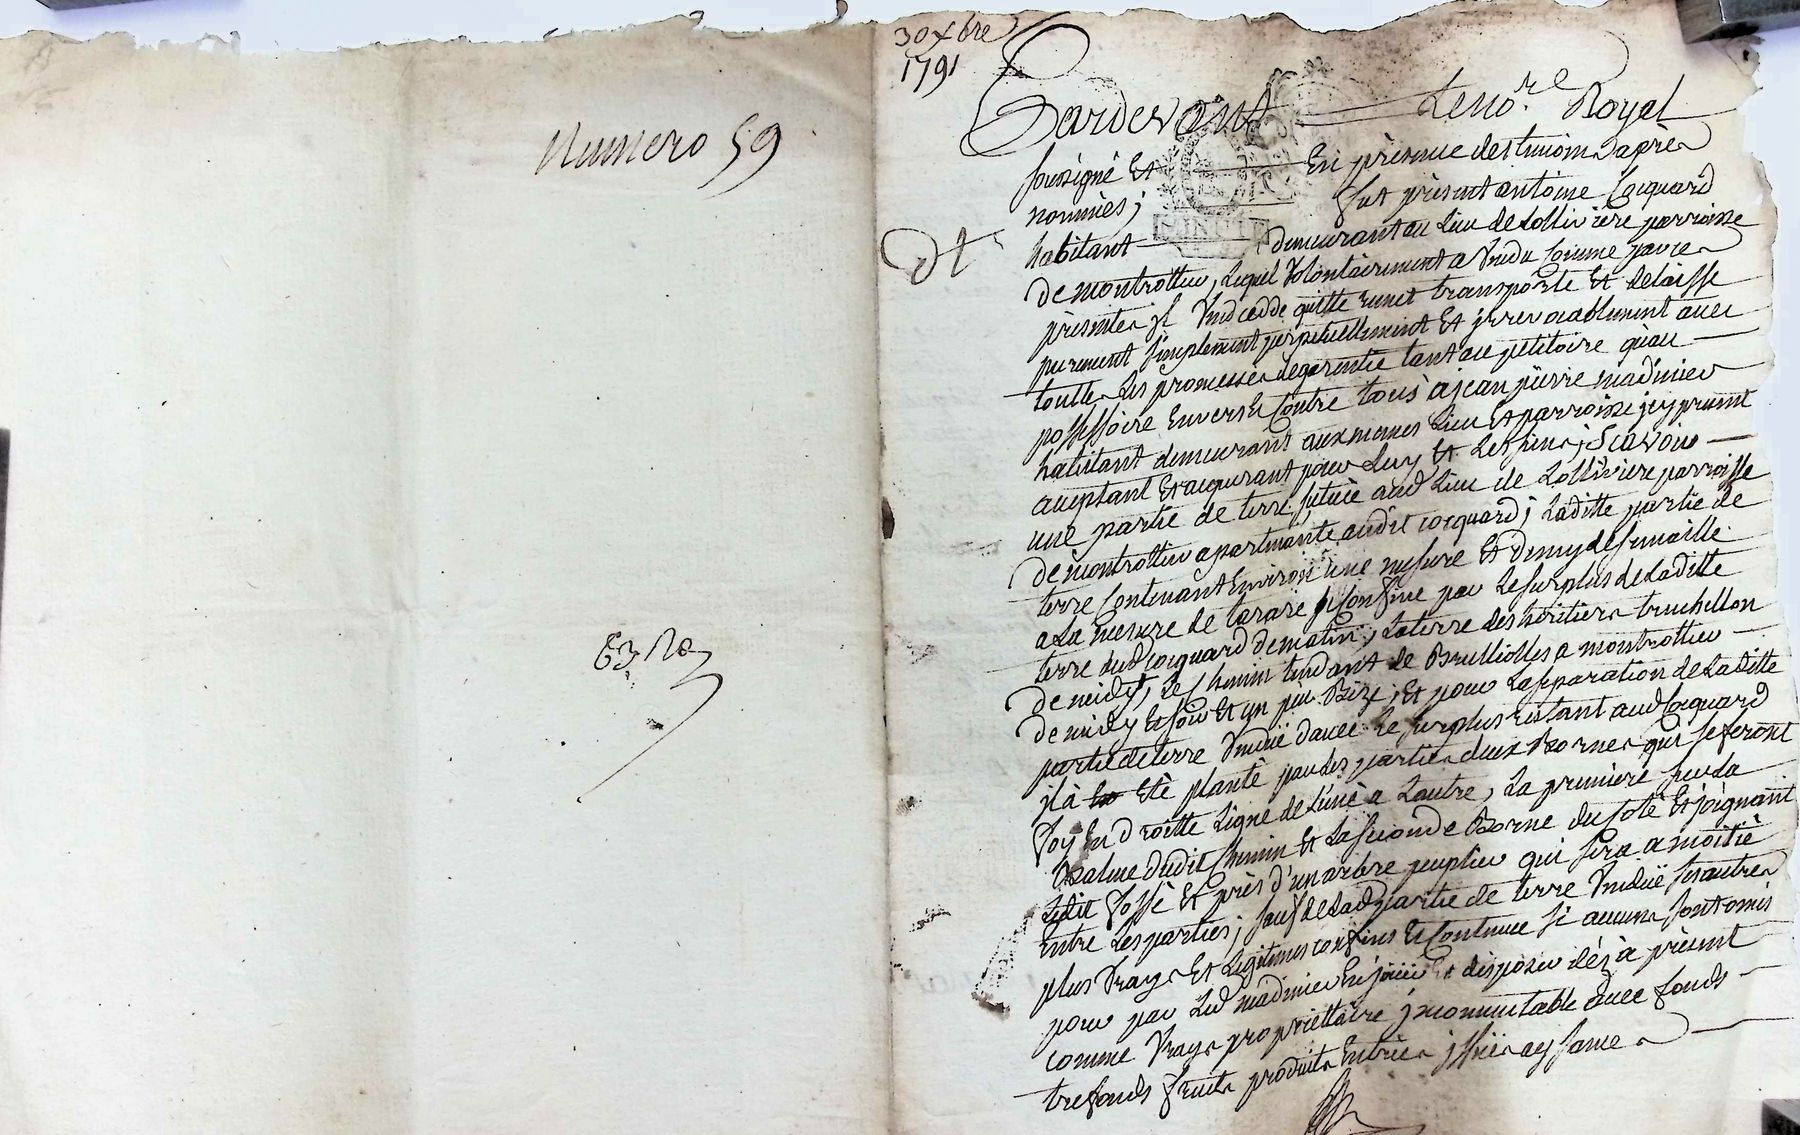 Numero 59
30 xbre
1791
Pardevant Le no.re Royal
soussigné Et En presence des temoins après
nommés; fut present antoine Cocquard
habitant demeurant au Lieu de Lollivière parroisse
de montrottier, Lequel Volontairement a Vendu Comme par ces
presentes il Vend cedde quitte remet transporte Et delaisse
purement simplement perpetuellement Et irrevocablement avec
touttes les promesses de garentie tant au petitoire qu'au
possessoire Envers Et Contre tous a jean pierre madinier
habitant demeurant aux memes Lieu Et parroisse icy present
acceptant Et acquerant pour Luy Et Les siens; Scavoir
une partie de terre située aud Lieu de Lollivière parroisse
de montrottier apartenante audit cocquard; Laditte partie de
terre Contenant Environ une mesure Et demy de semaille
a La mesure de tarare se Confine par Le surplus de Laditte
terre dud Cocquard de matin; La terre des heritiers truchillon
de midy; Le Chemin tendant de Brulliolles a montrottier
de midy Et soir Et un peu Bize; Et pour La separation de Laditte
partie de terre Vendue d'avec Le surplus restant aud Cocquard
il a Eté planté par Les parties deux Bornes qui se feront
foy En droitte Ligne de L'une a L'autre, La premiere sur La
Balme dudit Chemin Et La seconde Borne du coté Et joignant
Ledit fossé Et près d'un arbre peuplier qui sera a moitié
Entre Les parties; sauf de Lad partie de terre Vendue ses autres
plus Vrays Et Legitimes confins Et Contenue si aucuns sont omis
pour par Led madinier En jouir Et disposer dés à présent
comme Vrays propriettaire incommutable avec fonds
trefonds fruits produits Entrées issües aysances